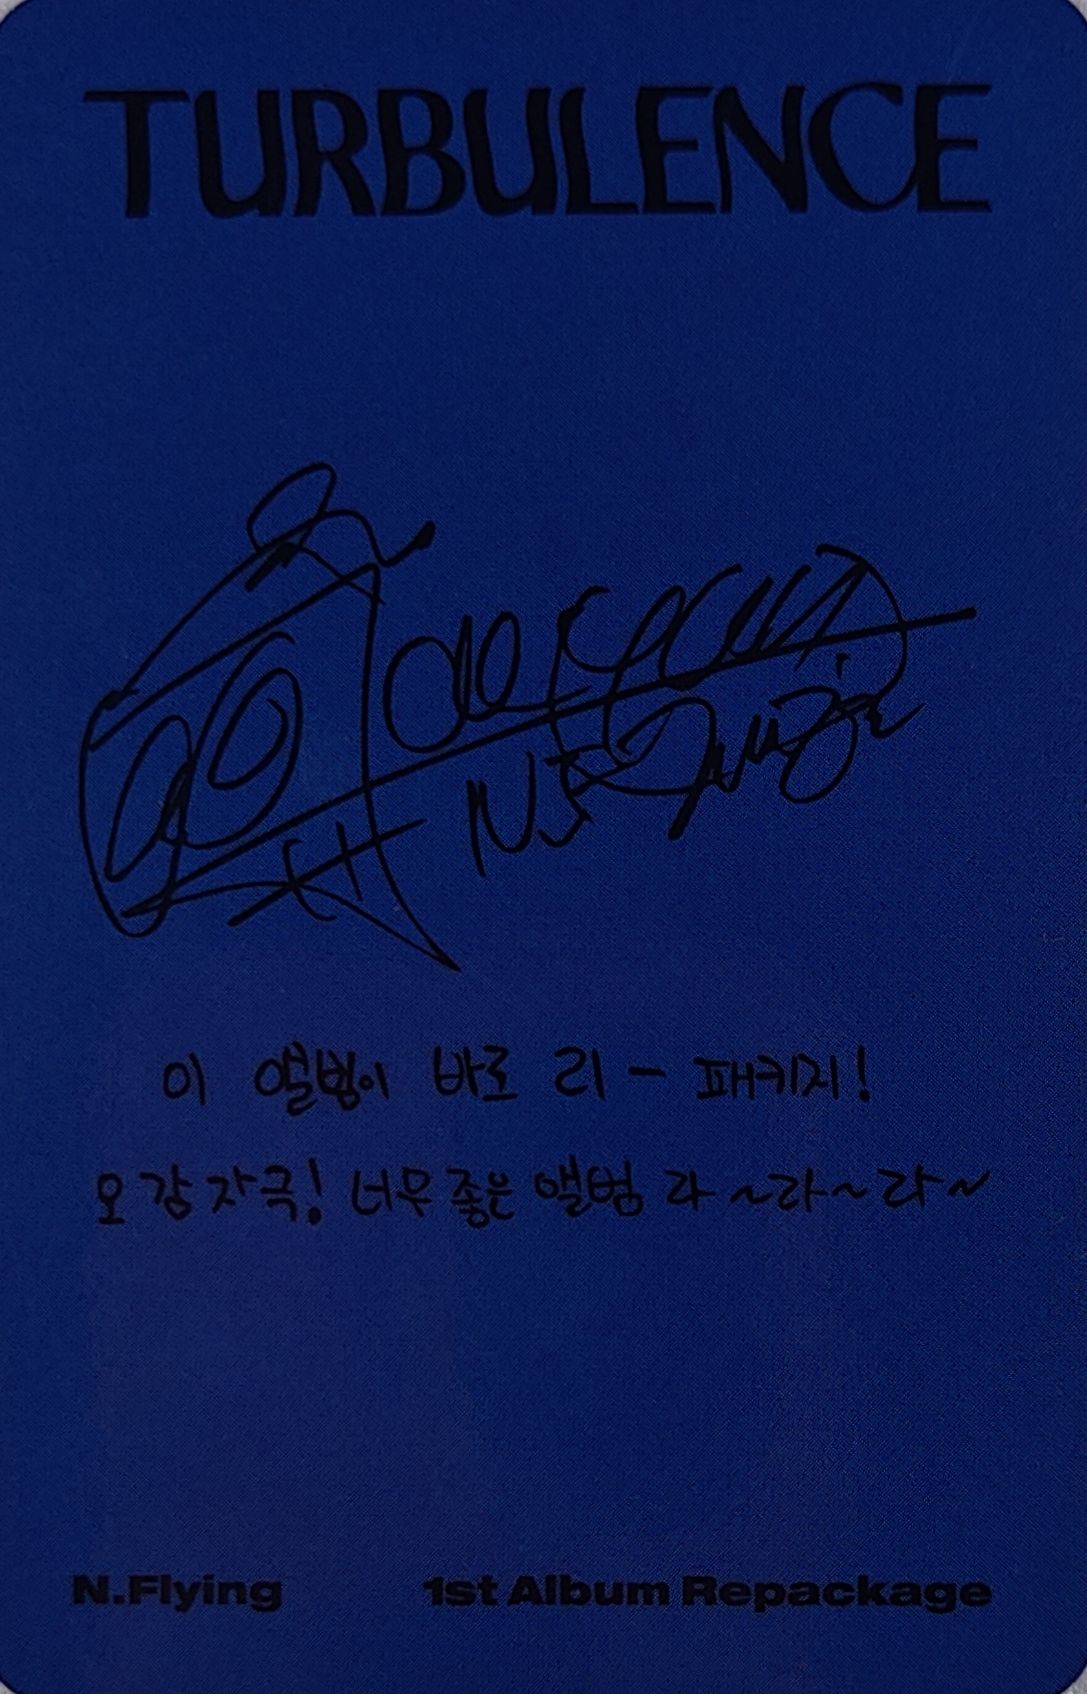 TURBULENCE
이 앨범이 바로 리 - 패키지!
오감자극! 너무 좋은 앨범 라~라~라~
N.Flying 1st Album Repackage